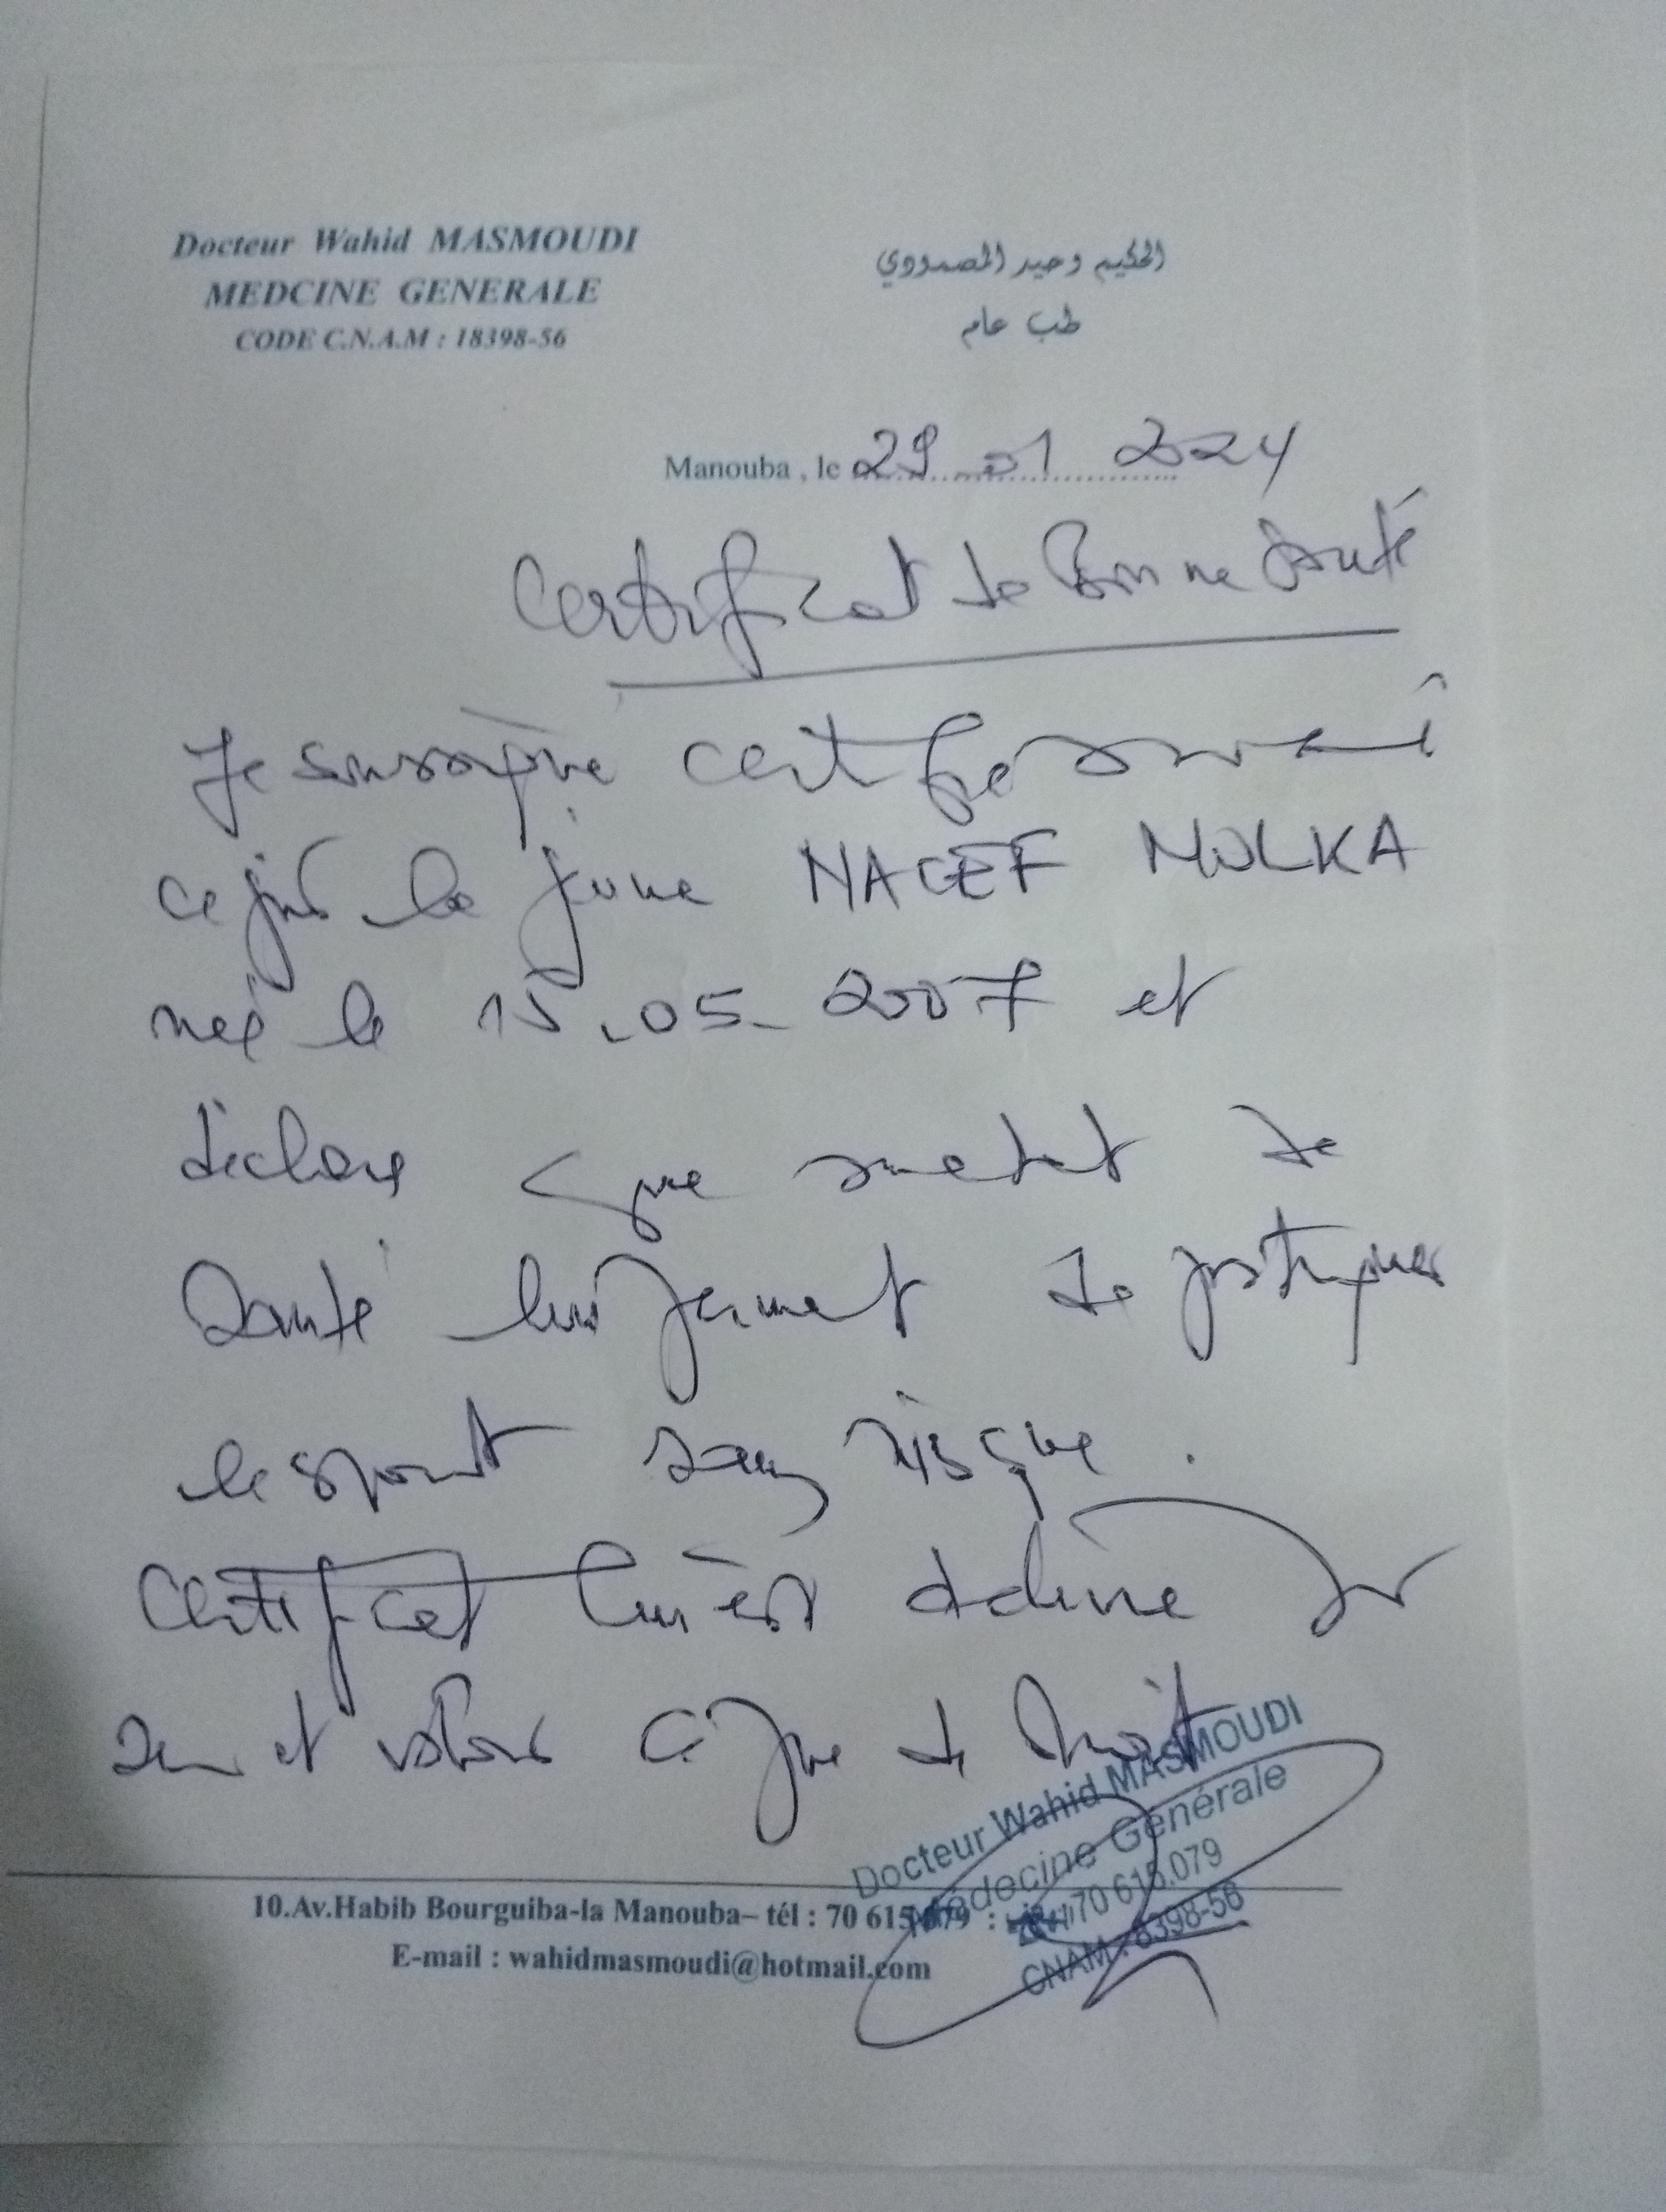 Docteur Wahid MASMOUDI
MEDCINE GENERALE
CODE C.N.A.M : 18398-56
الحكيم وحيد المصمودي
طب عام
Manouba , le 29 01 2024
Certificat de Bonne Santé
Je soussigné certifie
ce jour le jeune NACEF MOLKA
née le 15.05.2007 et
déclare que son etat de
Santé lui permet de pratiquer
le sport sans risque .
Certificat lui est délivré
et valoir ce que de droit
Docteur Wahid MASMOUDI
Médecine Générale
70 615.079
CNAM : 8398-56
10.Av.Habib Bourguiba-la Manouba– tél : 70 615 079 :
E-mail : wahidmasmoudi@hotmail.com